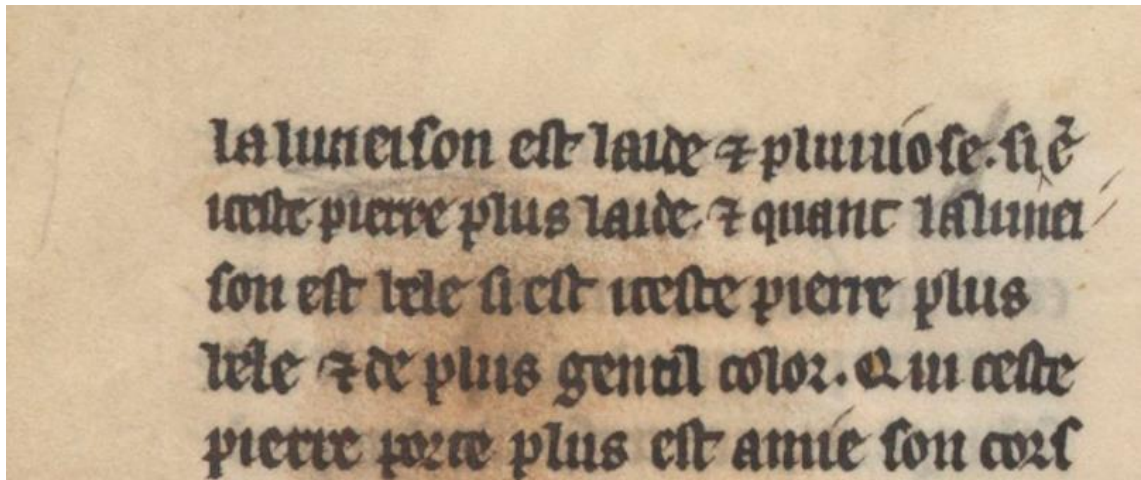 la luneison est laide ⁊ pluuiose. si ē
iceste pierre plus laide. ⁊ quant la lunei
son est bele si est iceste pierre plus
bele ⁊ de plus gentil color. Qui ceste
pierre porte plus est amie son cors